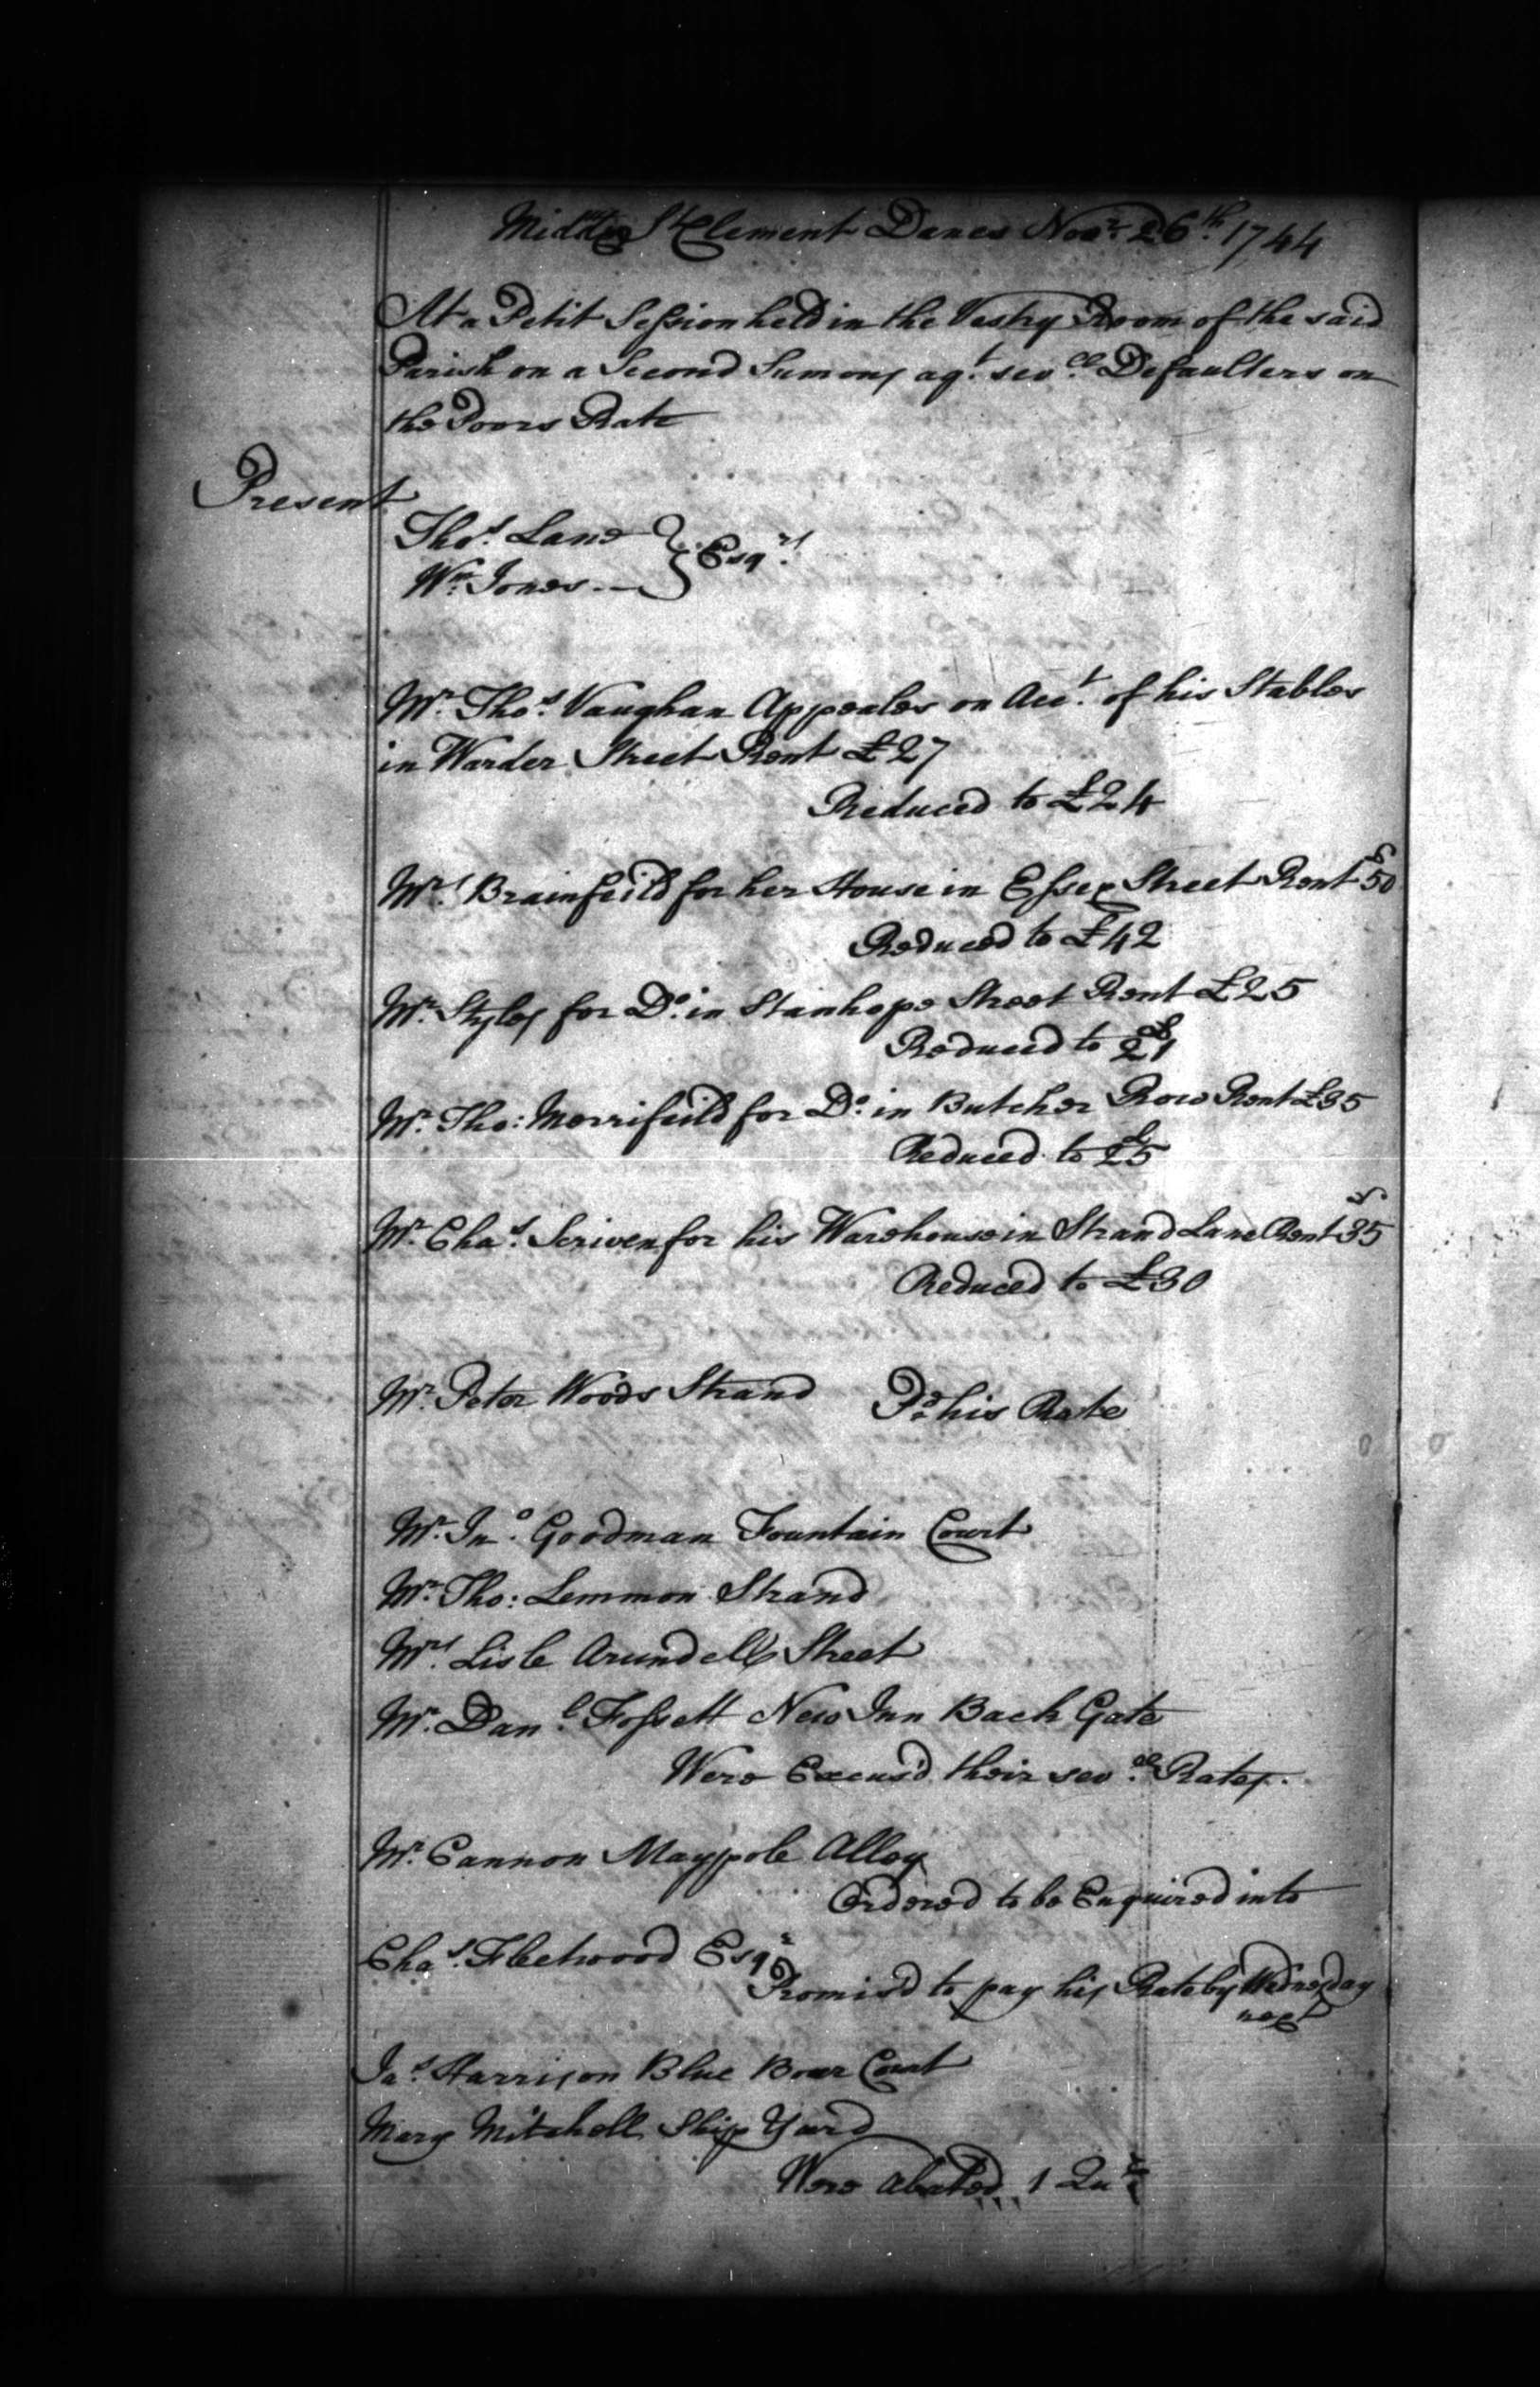 Middx St Clement Danes Novr. 26th. 1744
At a Petit Session held in the Vestry Room of the said
Parish on a Second Sumons agt. sevll. Defaulters on
the Poors Rate
Present
Thos. Lane
Wm. Jones
Esqrs.
Mr. Thos. Vaughan Appeales on Acct. of his Stables
in Warder Street Rent £27
Reduced to £24
Mrs. Brainfeild for her House in Essex Street Rent £50
Reduced to £42
Mr. Styles for Do. in Stanhope Street Rent £25
Reduced to £21
Mr. Tho: Merrifeild for Do. in Butcher Row Rent £35
Reduced to £25
Mr. Chas. Scriven for his Warehouse in Strand Lane Rent £35
Reduced to £30
Mr. Peter Woods Strand Pd. his Rate
Mr. Jno. Goodman Fountain Court
Mr. Tho: Lemmon Strand
Mrs. Lisle Arundell Street
Mr. Danl. Fossett New Inn Back Gate
Were Excus'd their sevll. Rates.
Mr. Cannon Maypole Alley
Ordered to be Enquired into
Chas. Fleetwood Esqr.
Promis'd to pay his Rate by Wednesday
next
Jas. Harrison Blue Boar Court
Mary Mitchell Ship Yard
Were abated 1 Qur.